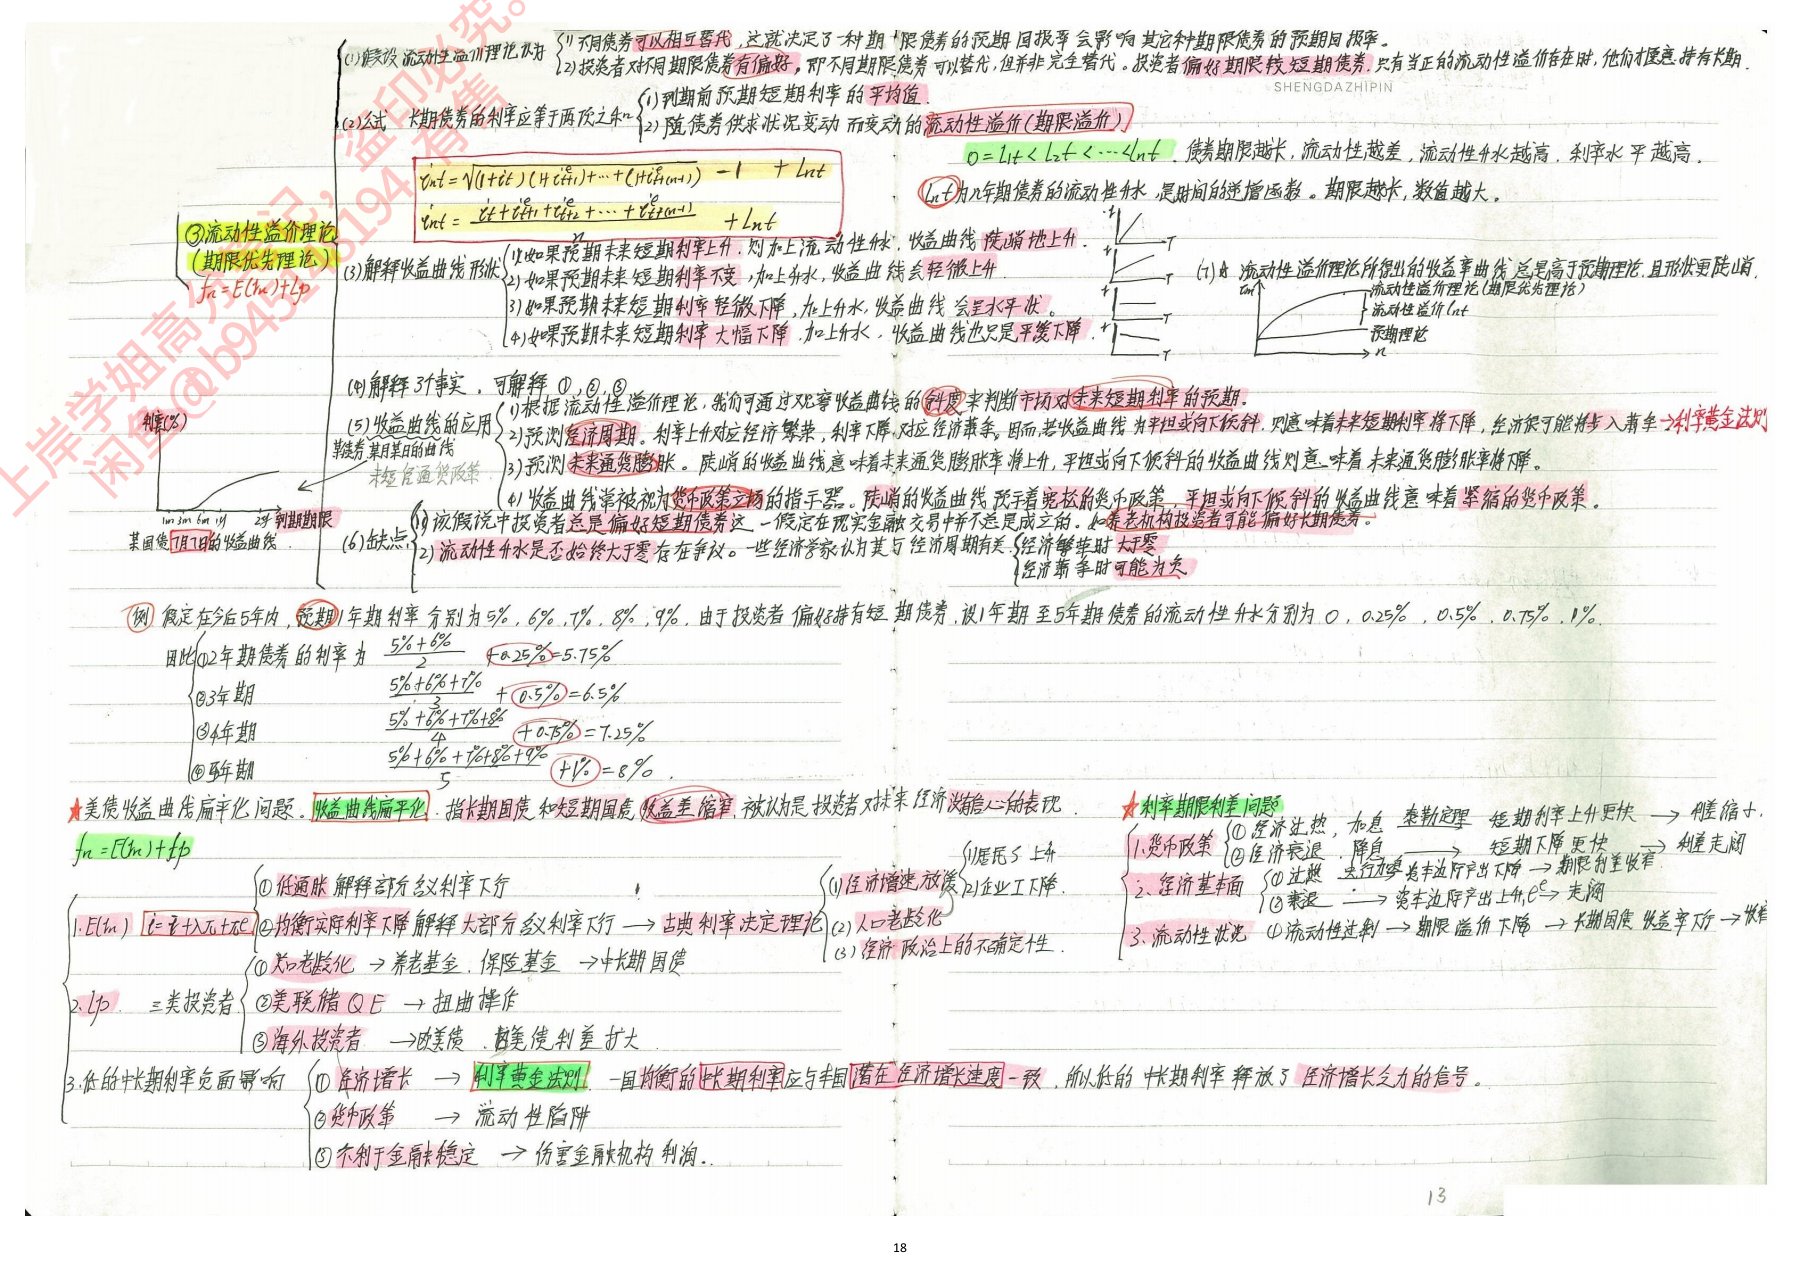 (1)假设 流动性溢价理论认为
1) 不同债券可以相互替代,这就决定了一种期限债券的预期回报率会影响其它种期限债券的预期回报率。
2) 投资者对不同期限债券有偏好,即不同期限债券可以替代,但并非完全替代。投资者偏好期限较短期债券,只有当正的流动性溢价存在时,他们才愿意持有长期.
SHENGDAZHIPIN
(2)公式 长期债券的利率应等于两项之和
1) 到期前预期短期利率的平均值.
2) 随债券供求状况变动而变动的流动性溢价(期限溢价)
0=l1t<l2t<…<lnt. 债券期限越长,流动性越差,流动性升水越高,利率水平越高.
int=√(1+it)(1+iet+1)+…+(1+iet+(n-1)) -1 + lnt
lnt为n年期债券的流动性升水,是时间的递增函数。期限越长,数值越大。
int = (it+iet+1+iet+2+…+iet+(n-1))/n + lnt
③流动性溢价理论
(期限优先理论)
fn=E(rn)+Lp
(3)解释收益曲线形状
1)如果预期未来短期利率上升,则加上流动性升水,收益曲线陡峭地上升.
2)如果预期未来短期利率不变,加上升水,收益曲线会轻微上升.
3)如果预期未来短期利率轻微下降,加上升水,收益曲线会呈水平状。
4)如果预期未来短期利率大幅下降,加上升水,收益曲线也只是平缓下降.
(7)☆ 流动性溢价理论所得出的收益率曲线总是高于预期理论,且形状更陡峭.
流动性溢价理论(期限优先理论)
流动性溢价lnt
预期理论
n
(4)解释3个事实,可解释①,②,③
(5)收益曲线的应用
1)根据流动性溢价理论,我们可通过观察收益曲线的斜度来判断市场对未来短期利率的预期.
2)预测经济周期。利率上升对应经济繁荣,利率下降对应经济萧条,因而,若收益曲线为平坦或向下倾斜,则意味着未来短期利率将下降,经济很可能将步入萧条→利率黄金法则
3)预测未来通货膨胀。陡峭的收益曲线意味着未来通货膨胀率将上升,平坦或向下倾斜的收益曲线则意味着未来通货膨胀率将下降。
4)收益曲线常被视为货币政策立场的指示器。陡峭的收益曲线预示着宽松的货币政策,平坦或向下倾斜的收益曲线意味着紧缩的货币政策。
利率(%)
某债券某月某日的曲线
1m 3m 6m 1y 2y 到期期限
某国债7月7日的收益曲线.
(6)缺点
1)该假说中投资者总是偏好短期债券这一假定在现实金融交易中并不总是成立的。如养老机构投资者可能偏好长期债券。
2)流动性升水是否始终大于零存在争议。一些经济学家认为其与经济周期有关
经济繁荣时大于零
经济萧条时可能为负
例 假定在今后5年内,预期1年期利率分别为5%,6%,7%,8%,9%,由于投资者偏好持有短期债券,设1年期至5年期债券的流动性升水分别为0,0.25%,0.5%,0.75%,1%.
因此①2年期债券的利率为 (5%+6%)/2 +0.25%=5.75%
②3年期 (5%+6%+7%)/3 +0.5%=6.5%
③4年期 (5%+6%+7%+8%)/4 +0.75%=7.25%
④5年期 (5%+6%+7%+8%+9%)/5 +1%=8%.
★美债收益曲线扁平化问题。收益曲线扁平化,指长期国债和短期国债收益差缩窄,被认为是投资者对未来经济没信心的表现.
fn=E(rn)+Lp
1.E(rn) i=r+λπ+πe
①低通胀解释部分名义利率下行
②均衡实际利率下降解释大部分名义利率下行→古典利率决定理论
(1)经济增速放缓
1)居民S上升
2)企业I下降.
(2)人口老龄化
(3)经济政治上的不确定性.
2.Lp. 三类投资者
①人口老龄化→养老基金.保险基金→中长期国债
②美联储QE→扭曲操作
③海外投资者→欧美债.日美债利差扩大.
3.低的中长期利率负面影响
①经济增长→利率黄金法则. 一国均衡的中长期利率应与本国潜在经济增长速度一致,所以低的中长期利率释放了经济增长乏力的信号。
②货币政策→流动性陷阱
③不利于金融稳定→伤害金融机构利润..
★利率期限利差问题
1.货币政策
①经济过热,加息 泰勒定理 短期利率上升更快→利差缩小.
②经济衰退.降息→短期下降更快→利差走阔
2.经济基本面
①过热 资本边际产出下降→期限利差收窄.
②衰退→资本边际产出上升→走阔
3.流动性状况 ①流动性过剩→期限溢价下降→长期国债收益率下行→收窄
13
18
上岸学姐高分笔记,盗印必究。